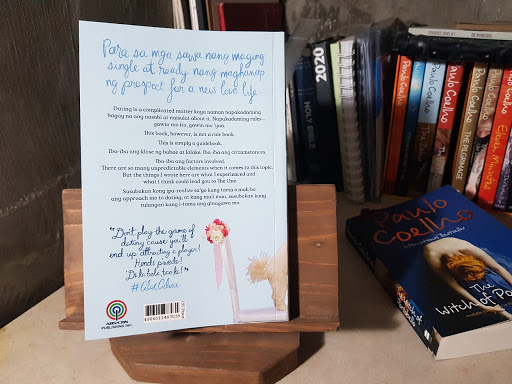 Para sa mga sawa nang maging
single at ready nang maghanap
ng prospect for a new love life.
Dating is a complicated matter kaya naman napakadaming
bagay na ang nasabi at naisulat about it. Napakadaming rules—
gawin mo ito, gawin mo 'yan.
This book, however, is not a rule book.
This is simply a guidebook.
Iba-iba ang klase ng babae at lalake. Iba-iba ang circumstances.
Iba-iba ang factors involved.
There are so many unpredictable elements when it comes to this topic.
But the things I wrote here are what I experienced and
what I think could lead you to The One.
Susubukan kong ipa-realize sa'yo kung tama o mali ba
ang approach mo to dating, at kung mali man, susubukan kong
tulungan kang i-tama ang ginagawa mo.
"Don't play the game of
dating 'cause you'll
end up attracting a player!
ABS-CBN
PUBLISHING INC.
HOLY BIBLE
2020
Paulo Coelho
The Zahir
Paulo Coelho
Paulo Coelho
THE PILGRIMAGE
Paulo Coelho
Eleven Minutes
Paulo Coelho
Paulo
Coelho
International Bestseller
The
Witch of Po